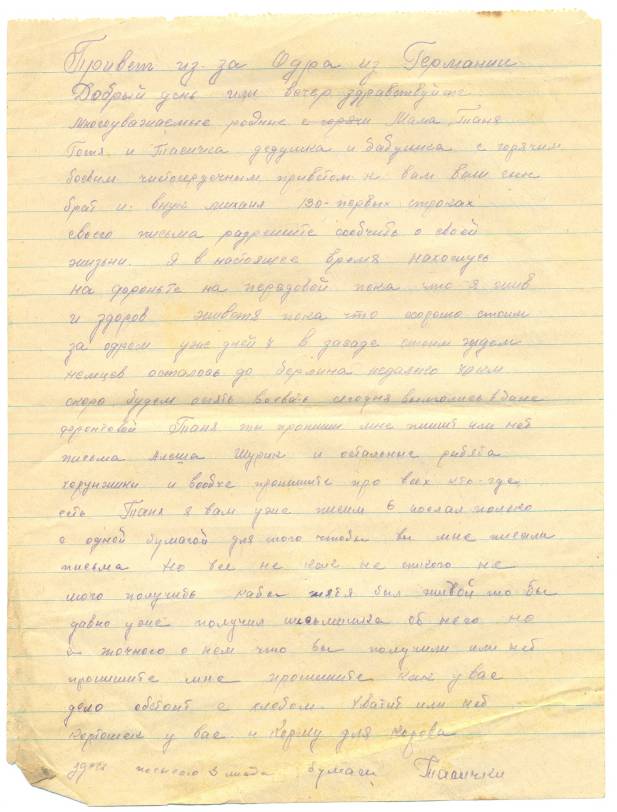 Привет из-за Одра из Германии
Добрый день или вечер здравствуйте
многоуважаемые родные с горячи Мама, Таня
Готя и Тасичка дедушка и бабушка с горячим
боевим чистосердечным приветом к вам ваш син
брат и внук михаил во-первых строках
своего письма разрешите сообчить о своей
жизни. Я в настоящее время нахожусь
на фроньте на передовой пока что я жив
и здоров живетя пока что хорошо стоим
за одром уже дней 4 в засаде стоим ждем
немцев осталось до берлина недалеко
скоро будем опять воевать сегодня вымылись в бане
фронтовой Таня ты пропиши мне пишит или нет
письма Алёша Шурик и остальные рибята
и вобче пропишите про всех кто-где
есть Таня я вам уже писем 6 послал только
с одной бумагой для того чтобы вы мне писали
письма Но все не как не от кого не
могу получить кабы был живой то бы
давно уже получил письмишка об него но
а точного о нем что вы получили или нет
пропишите мне пропишите как у вас
дело обстоит с хлебом. Хватит или нет
картошек у вас и корму для корова
здеся посылаю 3 листа бумаги Тасички